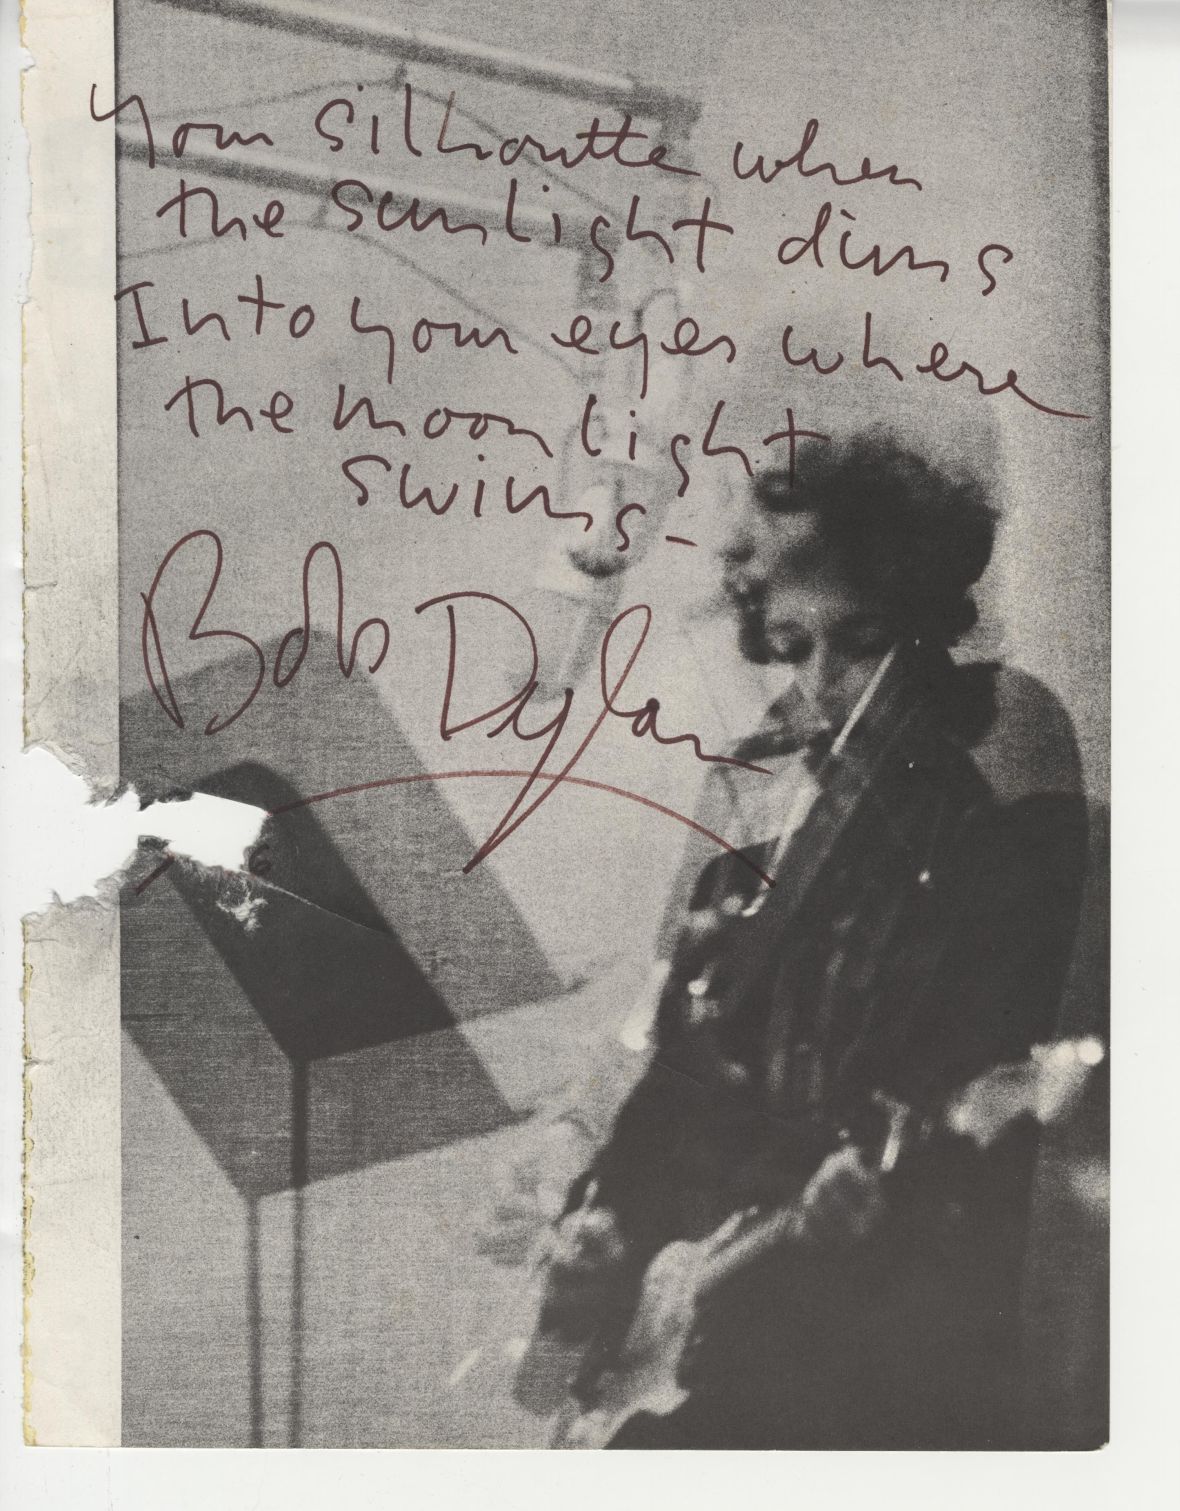 Your Silhoutte when
the sunlight dims
Into your eyes where
the moonlight
swims-
Bob Dylan